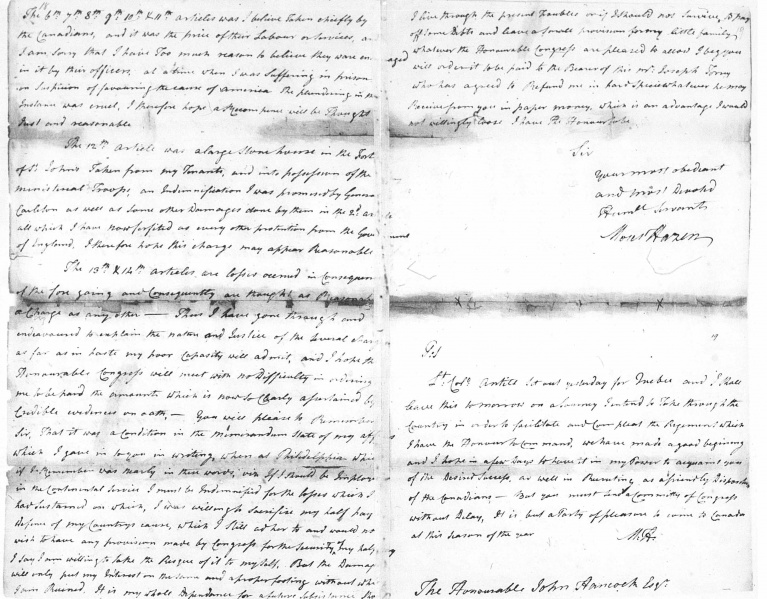 The 6th 7th 8th 9th 10th & 11th articles was I believe taken chiefly by
the Canadians, and it was the price of their Labour or Services, and
I am Sorry that I have Too much reason to believe they ware en
in it by their officers, at a time when I was Suffering in prison
on Suspicion of favouring the cause of america The plundering in this
Instain was cruel, I therefore hope a Recompence will be Thought
Just and reasonable
The 12th article was a large Stone house in the Fort
of St. Johns Taken from my Tenants, and into possession of the
ministerial Troops, an Indemnification I was promised by General
Carleton as well as Some other Damages done by them in the 2d. ar
all which I have now forfited as every other protection from the Gover
of England. I therefore hope this charge may appear Reasonable
The 13th & 14th articles are losses occured in Consequence
of the fore going and Consequently are thought as Reasonable
a Charge as any other — Thus I have gone through and
endeavoured to explain the nature and Justice of the Several charges
as far as in haste my poor Capasity will admit, and I hope the
Honourable Congress will meet with no Difficulty in ordering
me to be paid the amounts which is now so Clearly assertained by
Credible evidences on oath. — You will please to Remember
Sir, That it was a Condition in the Memorandum State of my aff
which I gave in to you in writing, when at Philadelphia which
if I Remember was nearly in these words, viz If I Should be Imploye
in the Continental Service I must be Indemnified for the losses which I
had Sustained on which, I was willing to Sacrifise my half pay
defence of my Countrys cause, which I Still adher to and would not
wish to have any provision made by Congress for the Security of my half
I Say I am willing to take the Resque of it to myself. But the Damag
will only put my Interest on the same and a proper footing without whic
I am Ruined. It is my whole Dependance for a future Subsistance Sho
I live through the present Troubles or if I should not Survive, to pay
off Some Debts and leave a Small provision for my little family
whatever the Honourable Congress are pleased to allow I beg you
will order it to be paid to the Bearer of this Mr. Joseph Torrey
who has agreed to Refund me in hard Specie whatever he may
Receive from you in paper money, which is an advantage I would
not willingly loose I have the Honour to be
Sir
Your most obediant
and most Devoted
Humbl Servants
Moses Hazen
P.S
Lt. Colo. Antill Set out yesterday for Quebec and I Shall
leave this tomorrow on a Journey I intend to Take through the
Country in order to facilitate and Compleat the Regement which
I have the Honour to Command, we have made a good begining
and I hope in a few Days to have it in my Power to acquaint you
of the Desired Success, as well in Recruting as a friendly Disposition
of the Canadians — But you must Send a Committy of Congress
without Delay, It is but a Party of pleasure to come to Canada
at this Season of the year
M.H.
The Honourable John Hancock Esqr.